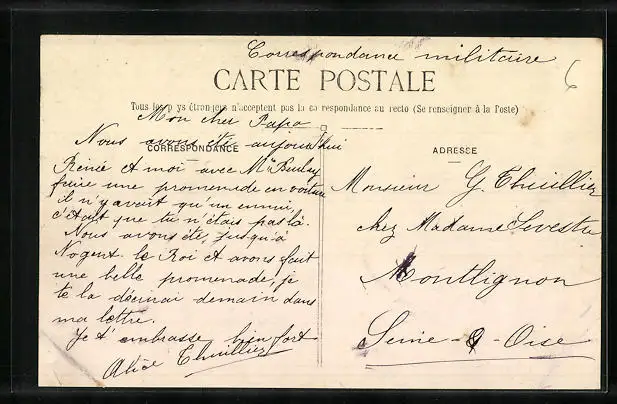 Correspondance militaire
CARTE POSTALE
Tous les p ys étrangers n'acceptent pas la co respondance au recto (Se renseigner à la Poste)
Mon cher Papa
CORRESPONDANCE
Nous avons été aujourd'hui
Renée et moi avec Mme
faire une promenade en voiture
il n'y avait qu'un ennui,
c'était que tu n'étais pas là.
Nous avons été, jusqu'à
Nogent le Roi et avons fait
une belle promenade, je
te la décrirai demain dans
ma lettre.
Je t'embrasse bien fort
Alice Thuillier
ADRESSE
Monsieur G. Thuillier
chez Madame Sevestre
Montlignon
Seine-&-Oise
6